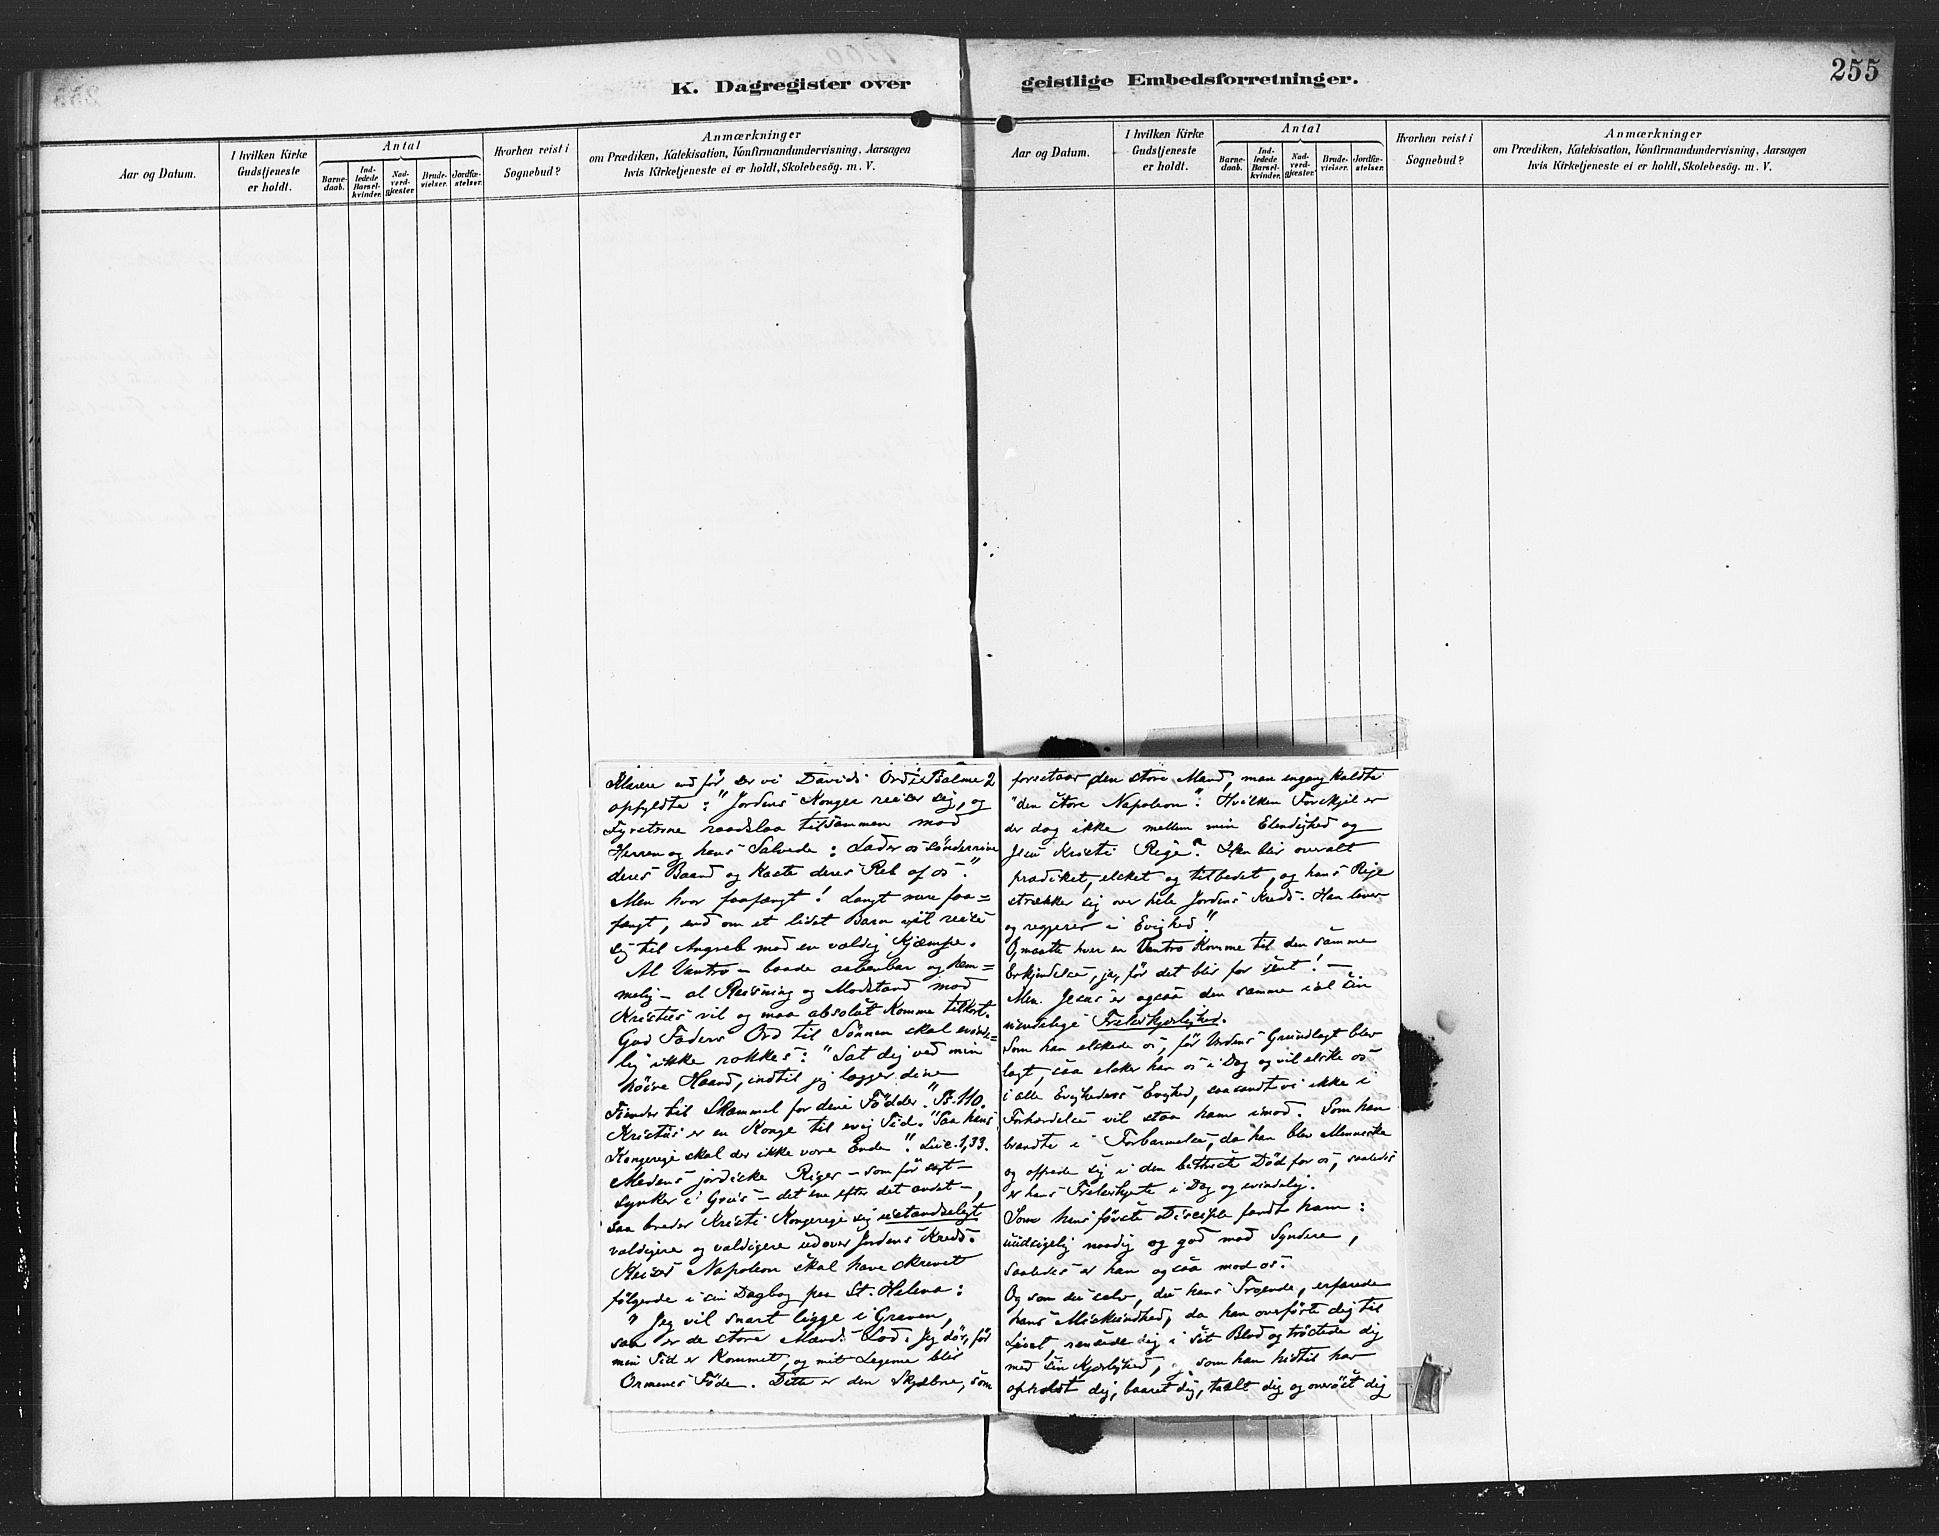 K. Dagregister over geistlige Embedsforretninger.
255
Aar og Datum.
I hvilken Kirke Gudstjeneste er holdt.
Antal
Barne-daab.
Ind-ledede Barsel-kvinder.
Nad-verd-gjæster.
Brude-vielser.
Jordfæ-stelser.
Hvorhen reist i Sognebud?
Anmærkninger
om Prædiken, Katekisation, Konfirmandundervisning, Aarsagen
hvis Kirketjeneste ei er holdt, Skolebesög. m. V.
Aar og Datum.
I hvilken Kirke Gudstjeneste er holdt.
Antal
Barne-daab.
Ind-ledede Barsel-kvinder.
Nad-verd-gjæster.
Brude-vielser.
Jordfæ-stelser.
Hvorhen reist i Sognebud?
Anmærkninger
om Prædiken, Katekisation, Konfirmandundervisning, Aarsagen
hvis Kirketjeneste ei er holdt, Skolebesög. m. V.
Klarere end før ser vi Davids Ord i Psalme 2
opfyldte: "Jordens Konger reiser sig, og
Fyrsterne raadslaa tilsammen mod
Herren og hans Salvede: Lader os sönderrive
deres Baand og kaste deres Reb af os".
Men hvor faafængt! Langt mere faa=
fængt, end om et lidet Barn vil reise
sig til Angreb mod en vældig Kjæmpe.
Al Vantro – baade aabenbar og hem=
melig – al Reisning og Modstand mod
Kristus vil og maa absolut komme tilkort.
Gud Faders Ord til Sönnen skal evinde=
lig ikke rokkes: "Sæt dig ved min
höire Haand, indtil jeg lægger dine
Fiender til Skammel for dine Födder". Ps. 110.
Kristus er en Konge til evig Tid. "Paa hans
Kongerige skal der ikke være Ende". Luc. 1,33.
Medens jordiske Riger – som før sagt –
synker i Grus – det ene efter det andet –,
saa breder Kristi Kongerige sig uistandseligt
vældigere og vældigere udover Jordens Kreds.
Keiser Napoleon skal have skrevet
følgende i sin Dagbog paa St. Helena:
"Jeg vil snart ligge i Graven,
saa er de store Mænds Lod. Jeg dör, før
min Tid er kommet, og mit Legeme blir
Ormenes Føde. Dette er den Skjæbne, som
forestaar den store Mand, man engang kaldte
"den store Napoleon". Hvilken Forskjel er
der dog ikke mellem min Elendighed og
Jesu Kristi Rige? Han blir overalt
prædiket, elsket og tilbedet, og hans Rige
strækker sig over hele Jordens Kreds. Han lever
og regjerer i Evighed."
O, maatte hver en Vantro komme til den samme
Erkjendelse, ja, før det blir for sent! –
Men Jesus er ogsaa den samme i al sin
uendelige Frelserkjærlighed.
Som han elskede os, før Verdens Grundlagt blev
lagt, saa elsker han os i Dag og vil elske os
i alle Evigheders Evighed, saasandt vi ikke i
Forhærdelse vil staa ham imod. Som han
brændte i Forbarmelse, da han blev Menneske
og ofrede sig i den bitreste Död for os, saaledes
er hans Frelserhjerte i Dag og evindelig.
Som hans første Disciple fandt ham:
uudsigelig naadig og god mod Syndere,
saaledes er han ogsaa mod os.
Og som du selv, du hans Troende, erfarede
hans Miskundhed, da han overførte dig til
Livet, rensede dig i sit Blod og tröstede dig
med sin Kjærlighed, og som han hidtil har
opholdt dig, baaret dig, taalt dig og overöst dig